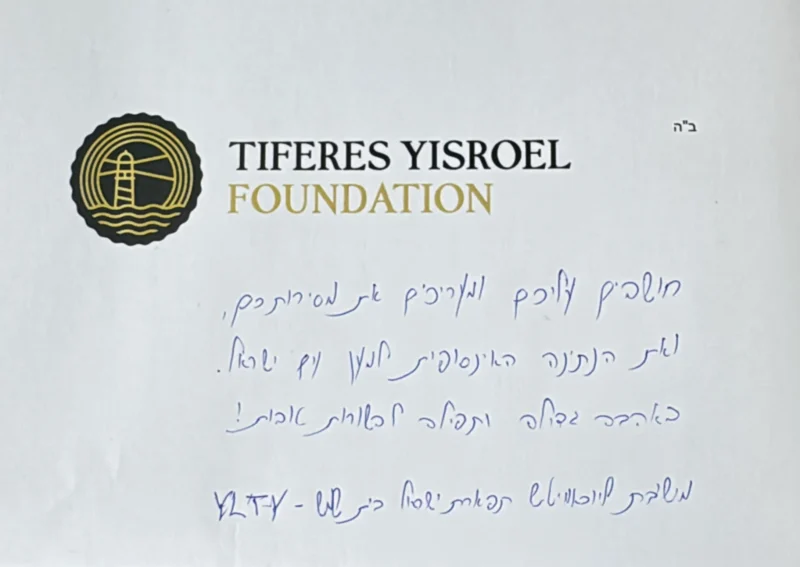 ב"ה
TIFERES YISROEL
FOUNDATION
חושבים עליכם ומעריכים את מסירותכם,
ואת הנתינה האינסופית למען עם ישראל.
באהבה גדולה ותפילה לבשורות טובות!
מישיבת ליובאוויטש תפארת ישראל בית שמש - YLTY